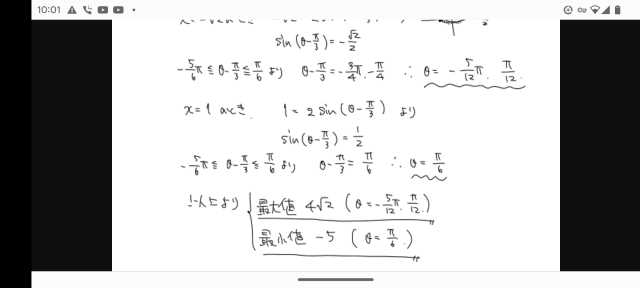 10:01
sin(θ-π/3)=-√2/2
-5/6π≦θ-π/3≦π/6 より θ-π/3=-3/4π,-π/4 ∴θ=-5/12π, π/12
x=1 のとき 1=2sin(θ-π/3) より
sin(θ-π/3)=1/2
-5/6π≦θ-π/3≦π/6 より θ-π/3=π/6 ∴θ=π/6
以上により 最大値 4√2 (θ=-5/12π, π/12)
最小値 -5 (θ=π/6)